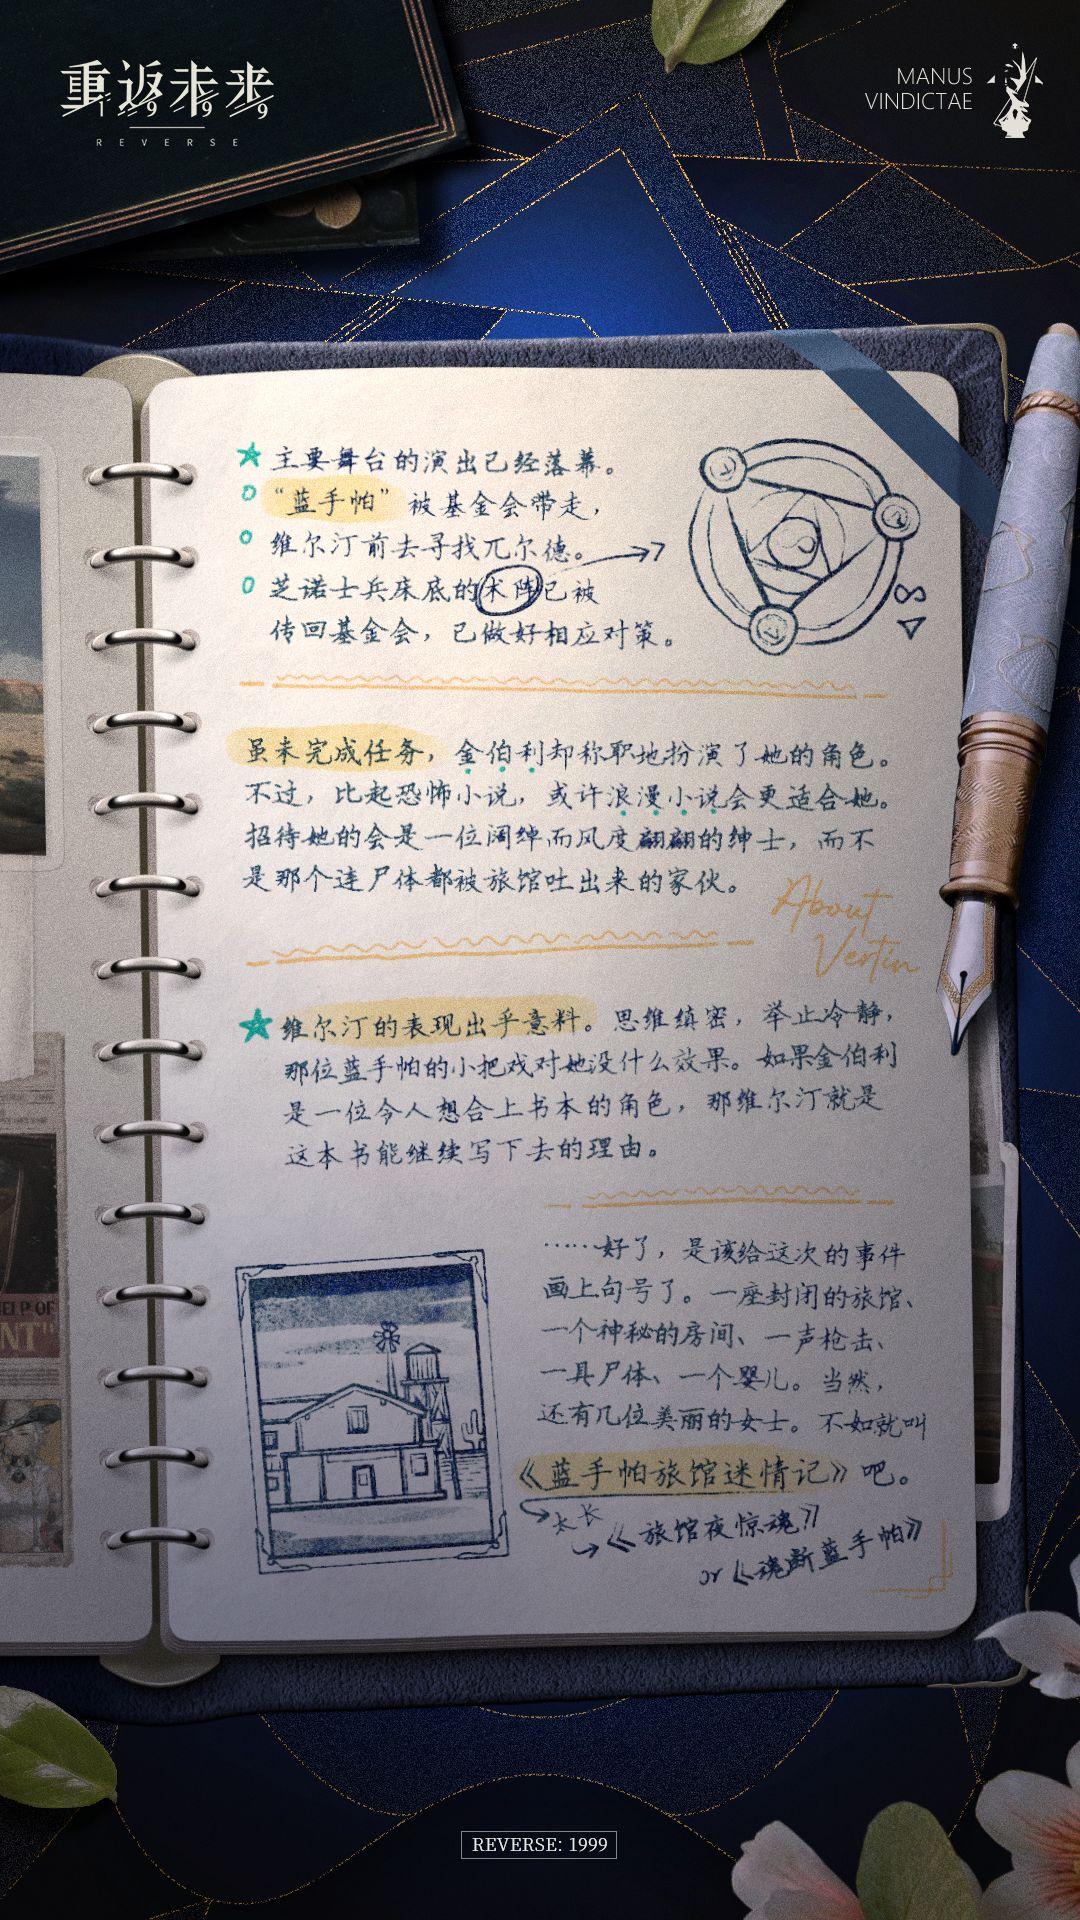 重返未来
1999
REVERSE
MANUS
VINDICTAE
主要舞台的演出已经落幕。
“蓝手帕”被基金会带走，
维尔汀前去寻找兀尔德。→?
芝诺士兵床底的术阵已被
传回基金会，已做好相应对策。
虽未完成任务，金伯利却称职地扮演了她的角色。
不过，比起恐怖小说，或许浪漫小说会更适合她。
招待她的会是一位阔绰而风度翩翩的绅士，而不
是那个连尸体都被旅馆吐出来的家伙。
About
Vertin
维尔汀的表现出乎意料。思维缜密，举止冷静，
那位蓝手帕的小把戏对她没什么效果。如果金伯利
是一位令人想合上书本的角色，那维尔汀就是
这本书能继续写下去的理由。
……好了，是该给这次的事件
画上句号了。一座封闭的旅馆、
一个神秘的房间、一声枪击、
一具尸体、一个婴儿。当然，
还有几位美丽的女士。不如就叫
《蓝手帕旅馆迷情记》吧。
太长
《旅馆夜惊魂》
or《魂断蓝手帕》
HELP OF
NT"
REVERSE: 1999